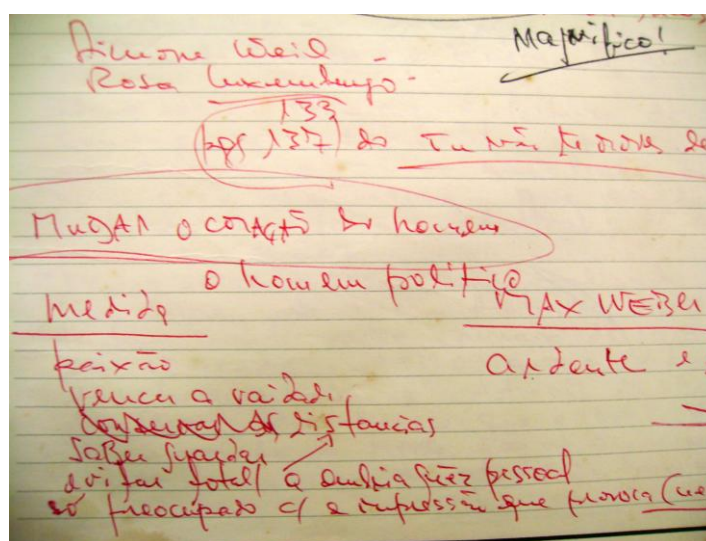 Magnífico!
Simone Weil
Rosa Luxemburgo -
133
pgs 137) do Tu não te moves de
MUDAR O CORAÇÃO do homem
o homem político
medida MAX WEBER
paixão ardente e
vencer a vaidade
conservar as distancias
saber guardar
evitar total/ a embriaguêz pessoal
só preocupado c/ a impressão que provoca